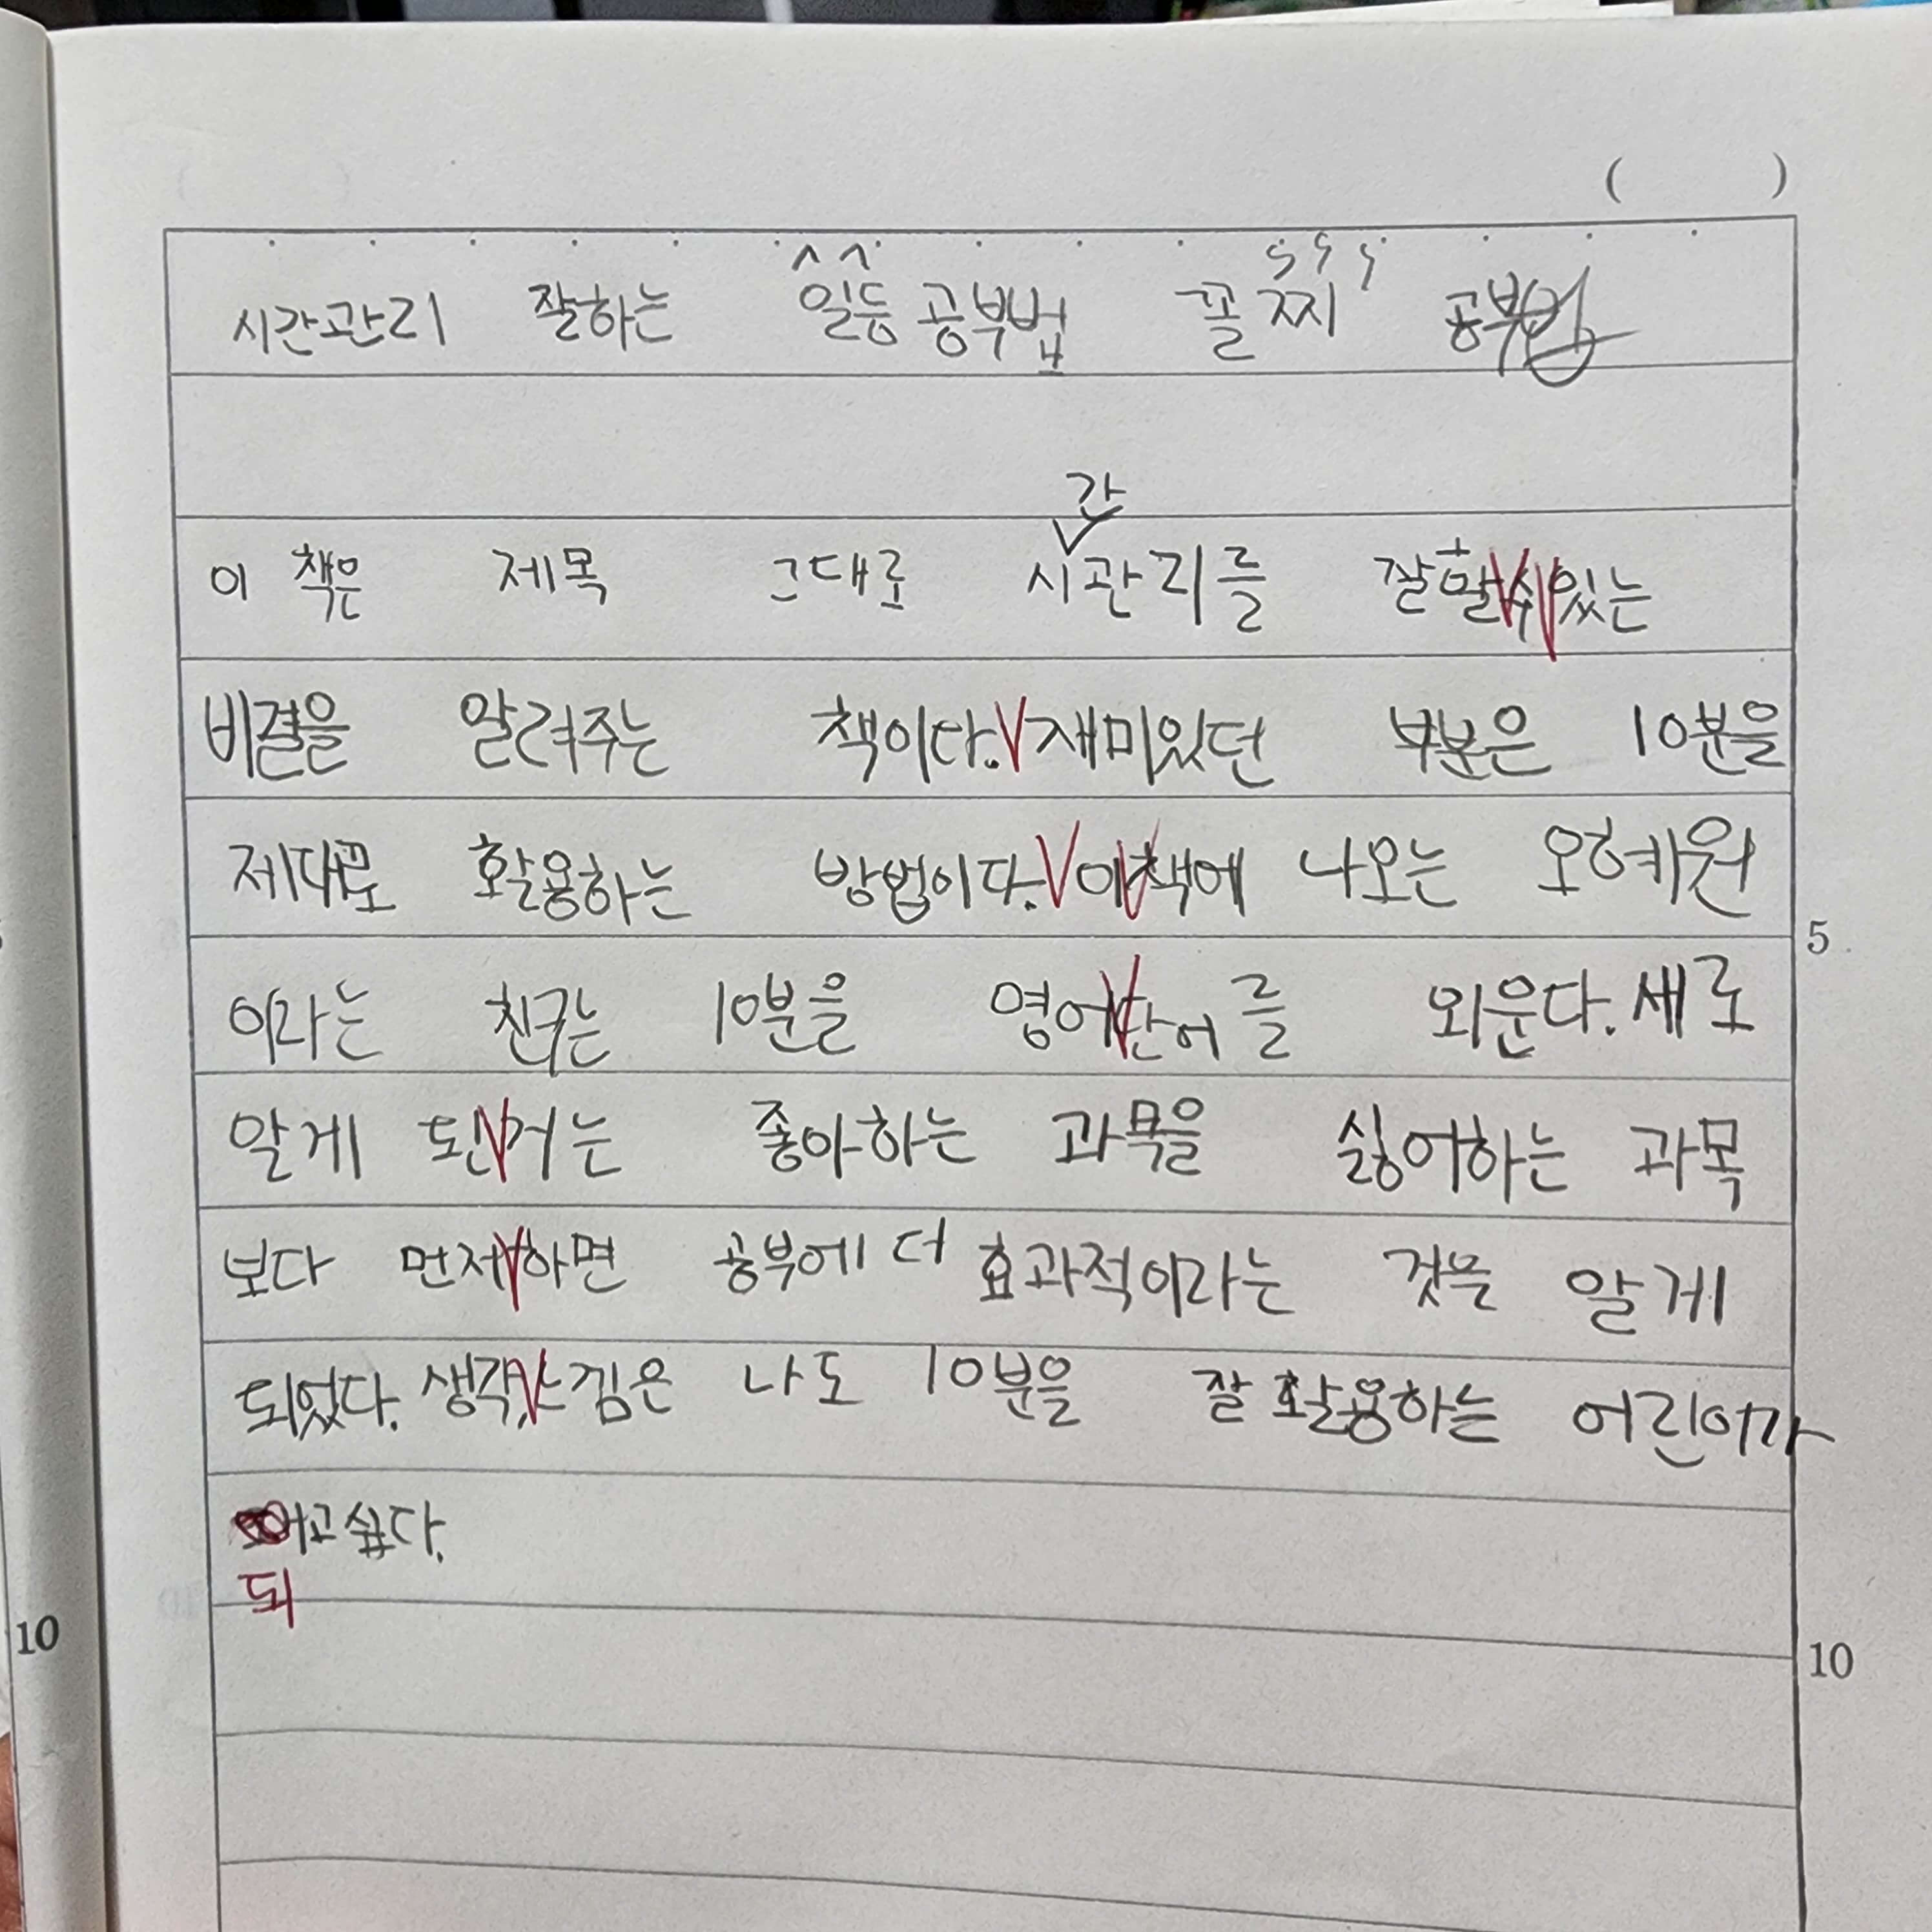 ( )
시간관리 잘하는 일등 공부법 꼴찌 공부법
간
이 책은 제목 그대로 시관리를 잘할수있는
비결을 알려주는 책이다. 재미있던 부분은 10분을
제대로 활용하는 방법이다. 이책에 나오는 오혜원
이라는 친구는 10분을 영어단어를 외운다. 세로
알게 된거는 좋아하는 과목을 싫어하는 과목
보다 먼저하면 공부에 더 효과적이라는 것을 알게
되었다. 생각, 느낌은 나도 10분을 잘 활용하는 어린이가
고싶다.
되
5
10
10